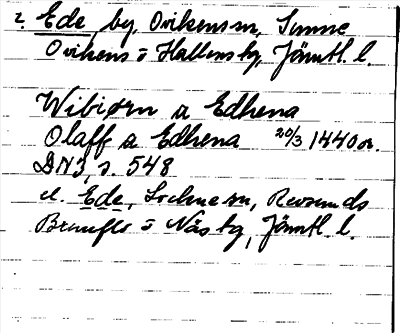 2. Ede by, Ovikens sn, Sunne
Ovikens o Hallens tg, Jämtl. l.
Wibiørn a Edhena
Olaff a Edhena 20/3 1440 or.
DN3, s. 548
el. Ede, Lockne sn, Revsunds
Brunflo o Näs tg, Jämtl. l.